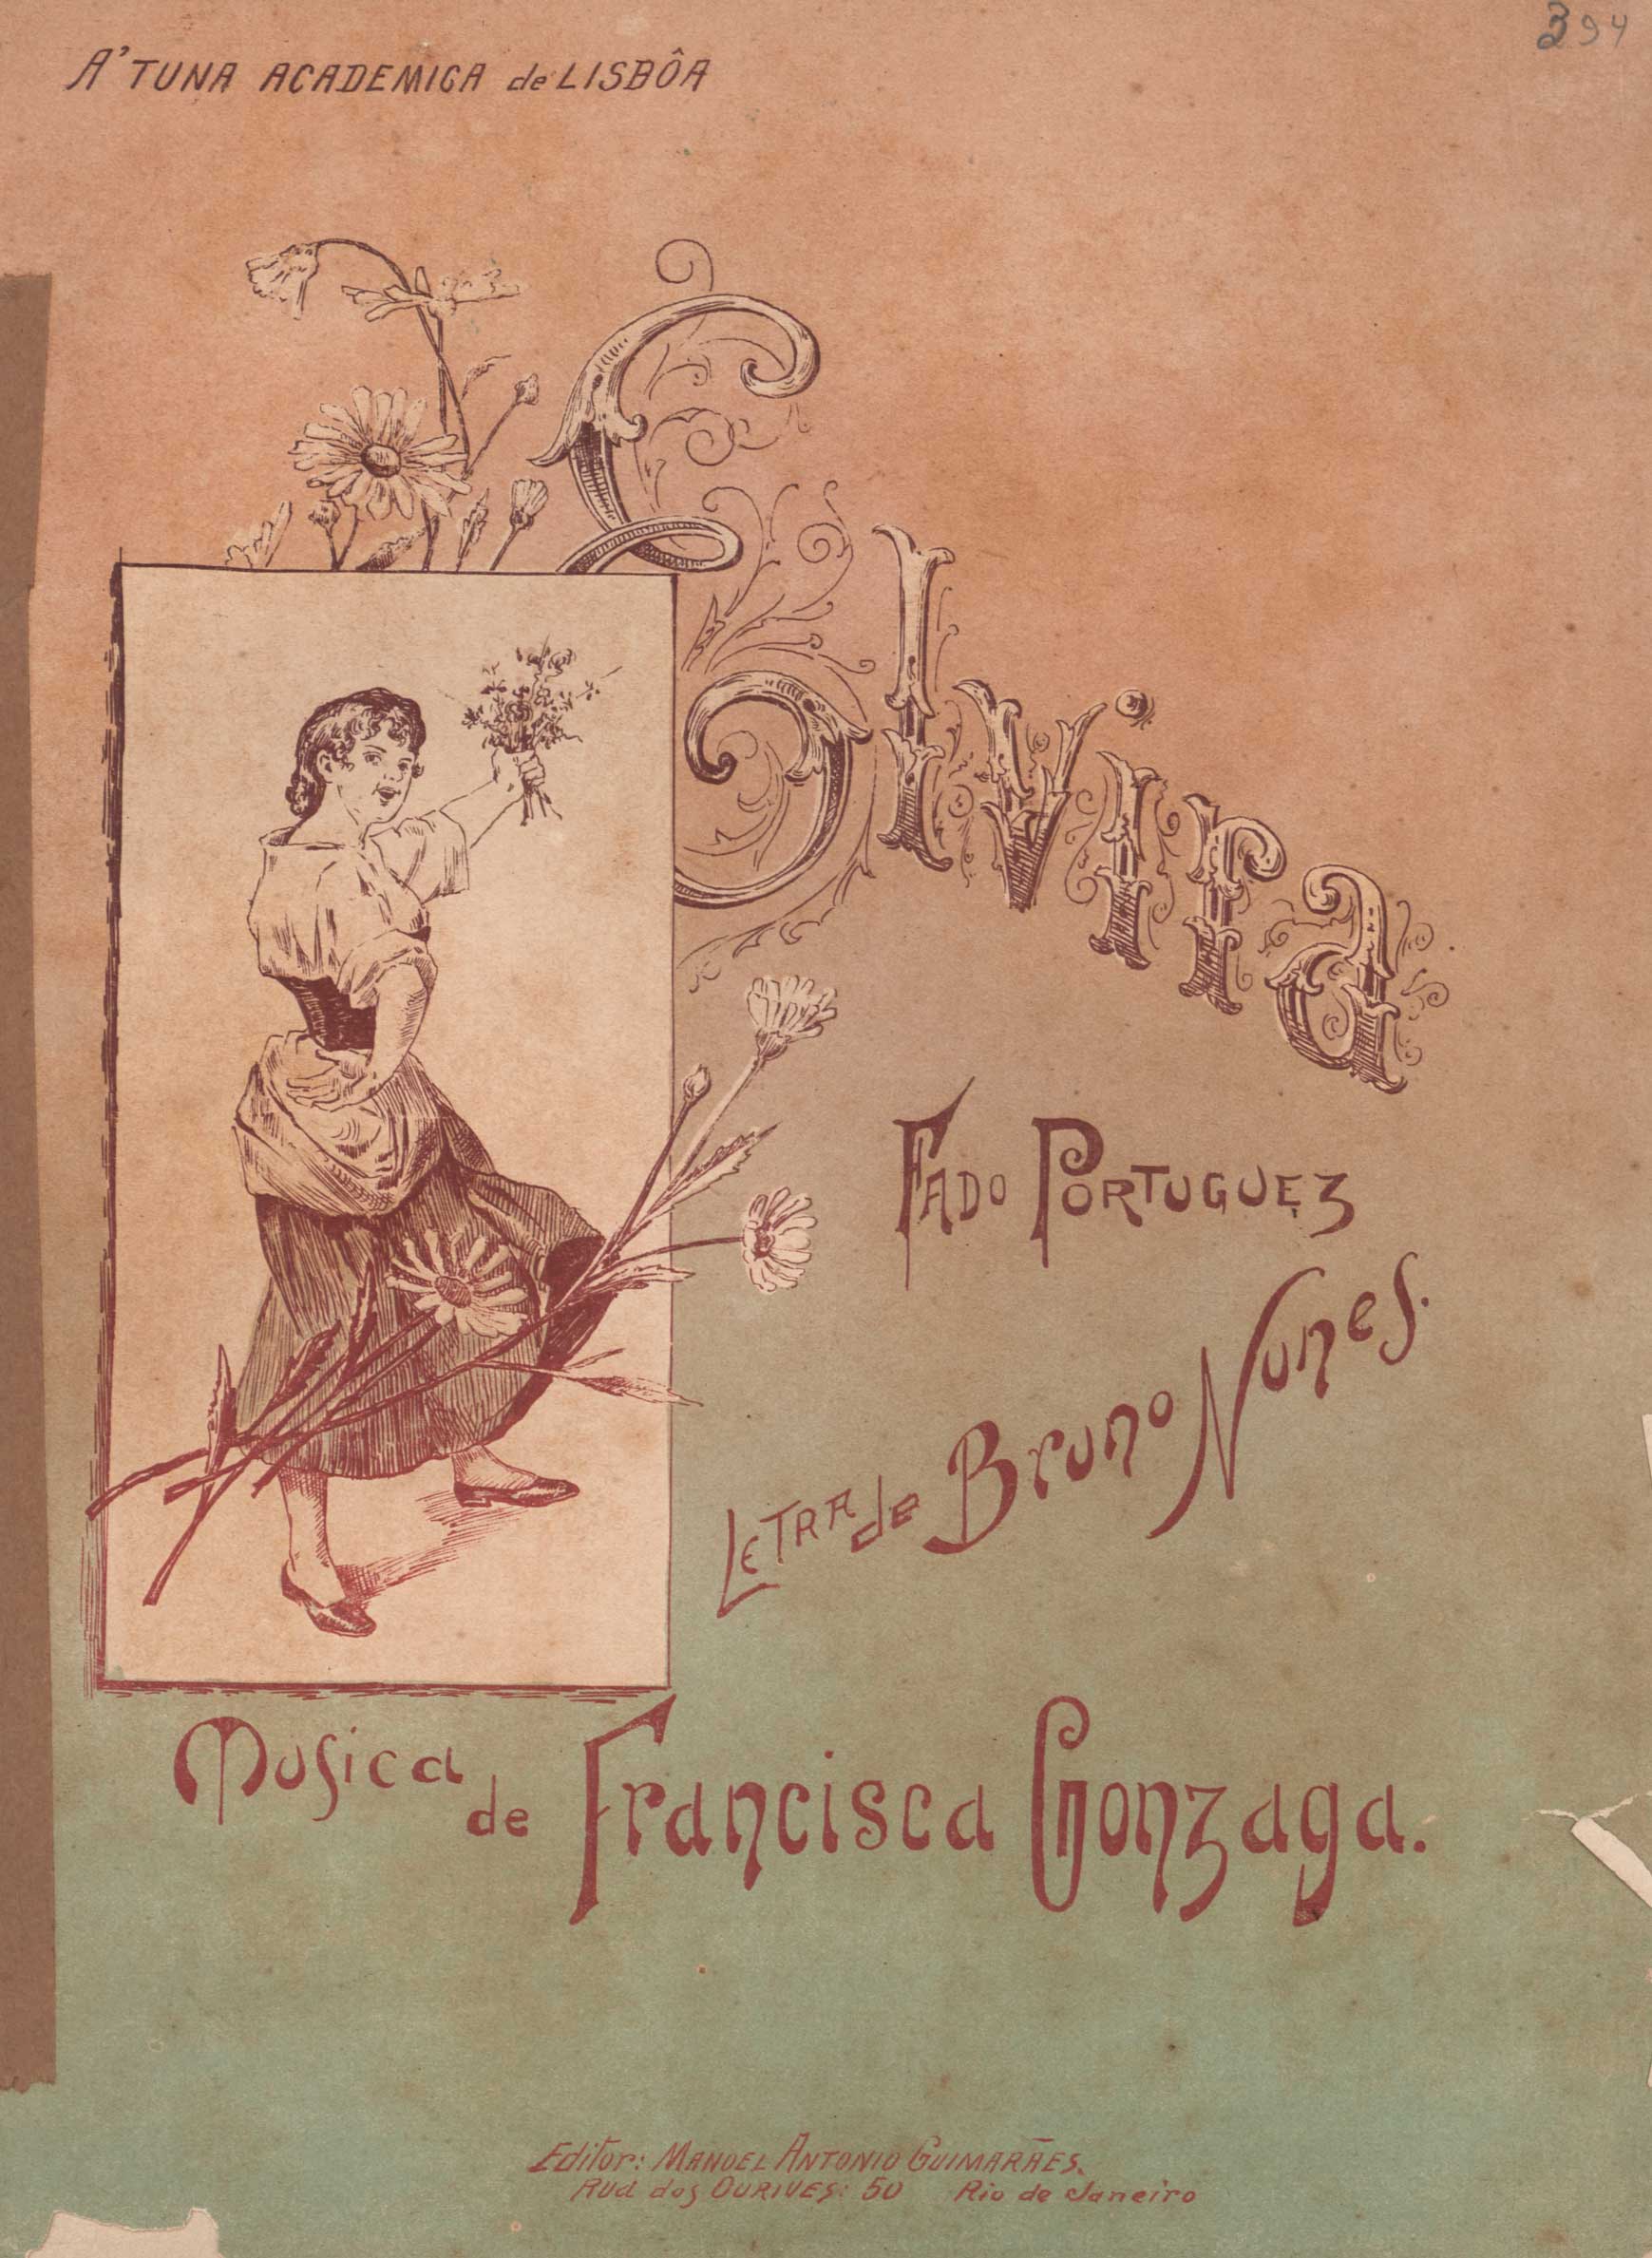 394
A' TUNA ACADEMICA de LISBÔA
Elvira
FADO PORTUGUEZ
LETRA de Bruno Nunes.
Musica de Francisca Gonzaga.
Editor: MANOEL ANTONIO GUIMARÃES.
RUA dos OURIVES: 50 Rio de Janeiro